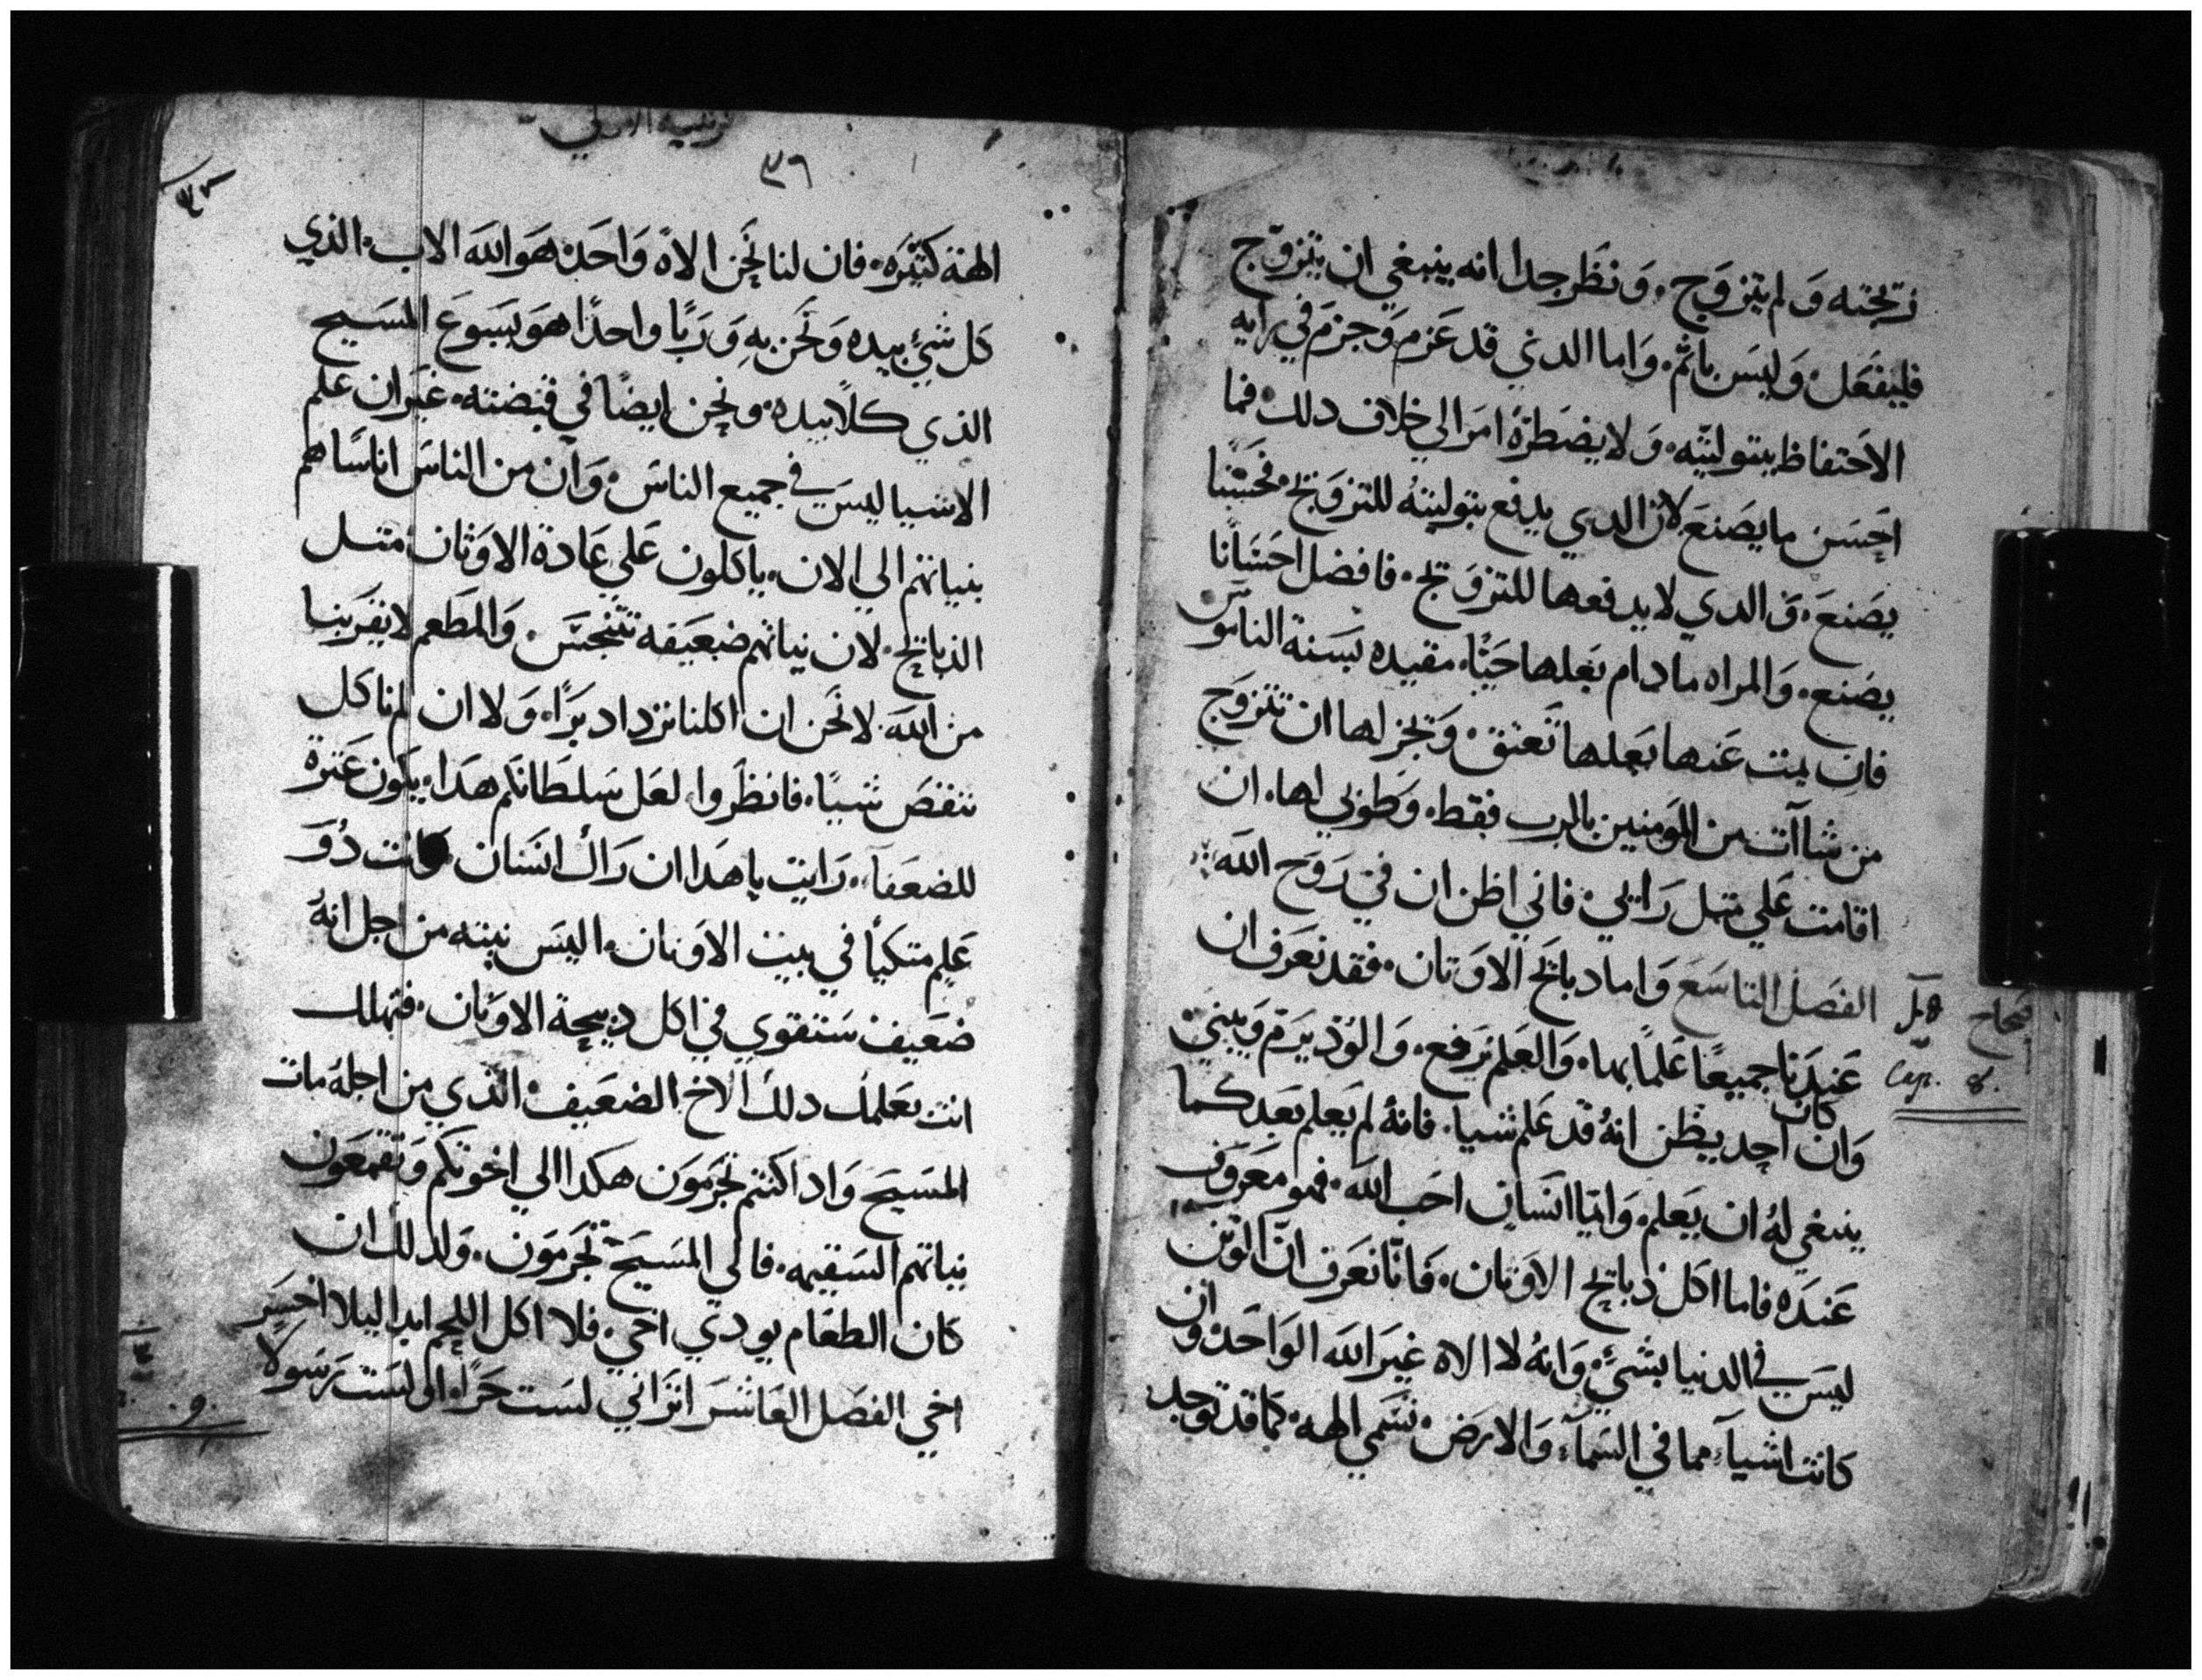 زيجته وَلم يتزوَج، وَنظَر جدا انه ينبغي ان يتزوّج
فليفعَل، وَليسَ باثم، وَاما الدي قد عَزم وَجزمَ في رايه
الاحَتفاظ ببتوليتِه، وَلا يضطرّهُ امَر الي خلاف دلك، فما
احَسَن ما يصَنعَ لان الدي يدفع بتوليتهُ للتزوَيج، فحَسَنًا
يصَنعَ، وَالدي لا يدفعها للتزوَيج، فافضل احَسَانا
يصَنع، وَالمراه ما دام بعَلها حَيًا، مقيده بسَنة الناموَس
فان يمت عَنها بعَلها تَعتق، وَيجز لها ان تتزوَج
من شاآت من المَومنين بالرب فقط، وَطوَبي لها، ان
اقامت عَلي متل رَايي، فاني اظن ان فيَ رَوَح اللَه
الفصَل التاسَعَ وَاما دبايَح الاوَتان، فقد نعَرَف ان
فصحاح
Cap. 8.
عَندَنا جميعًا عَلمًا بها، وَالعَلم يَرفع، وَالوَد يَرَم وَيبني،
وَان كان احد يظن انهُ قد عَلم شيا، فانهُ لم يَعلم بَعَد كما
ينبغي لهُ ان يَعلم، وَايّما انسَان احَب اللَه، فهو معَرَوَف
عَندَه فاما اكَل دبايح الاوَثان، فَانّا نعَرَف انّ الوَثن
ليسَ في الدنيا بشيَئ، وَانهُ لا الاه غيَر اللَه الوَاحَد، وَان
كانت اشيآَ، مما في السَمآَ، وَالارَض، تسَمي الهه، كما قد توَجد
٣٦
الهة كتيَره، فان لنا نحَن الاهً وَاحَد، هَو اللَه الاب، الذي
كَل شيَئ بيده وَنحَن بهِ وَرَبًا واحدًا هوَ يسَوعَ المسَيح
الذي كلاً بيده، ونحن ايضًا في قبَضته، غيَر ان عَلم
الاشيا ليسَ في جميع الناسَ، وَان من الناسَ اناسًا هم
بنياتهم الي الان، ياكلون عَلي عَادة الاوَثان، متل
الذبايح، لان نياتهم ضعَيفه تتنجسَ، وَالمطَعم لا يقرَبنا
من اللَه، لا نحَن ان اكلنا نزداد برًا، وَلا ان لم ناكل
ننقصَ شيئًا، فانظَروا، لعَل سَلطانكم هَدا، يكوَن عَترة
للضعَفآ، رَايت يا هَدا ان رَاك انسَان وانت دُوَ
عَلم متكيأً في بيت الاوَتان، اليسَ نيته من اجل انهُ
ضعَيف سَتتقوي في اكل دبيحة الاوَثان، فتهلك
انت بعَلمك دلك الاخ الضعَيف، الذي من اجلهُ مات
المسَيح وَادا كنتم تجَرَموَن هكدا الي اخوَتكم وَتقمعَون
نياتهم السَقيمه، فالي المسَيح تجَرَموَن، وَلدلك ان
كان الطعَام يودي اخي، فلا اكل اللحم ابدا ليلا اخسَر
اخي الفصَل العَاشرَ اترَاني لسَت حَرًا، الي لسَت رَسَوَلا